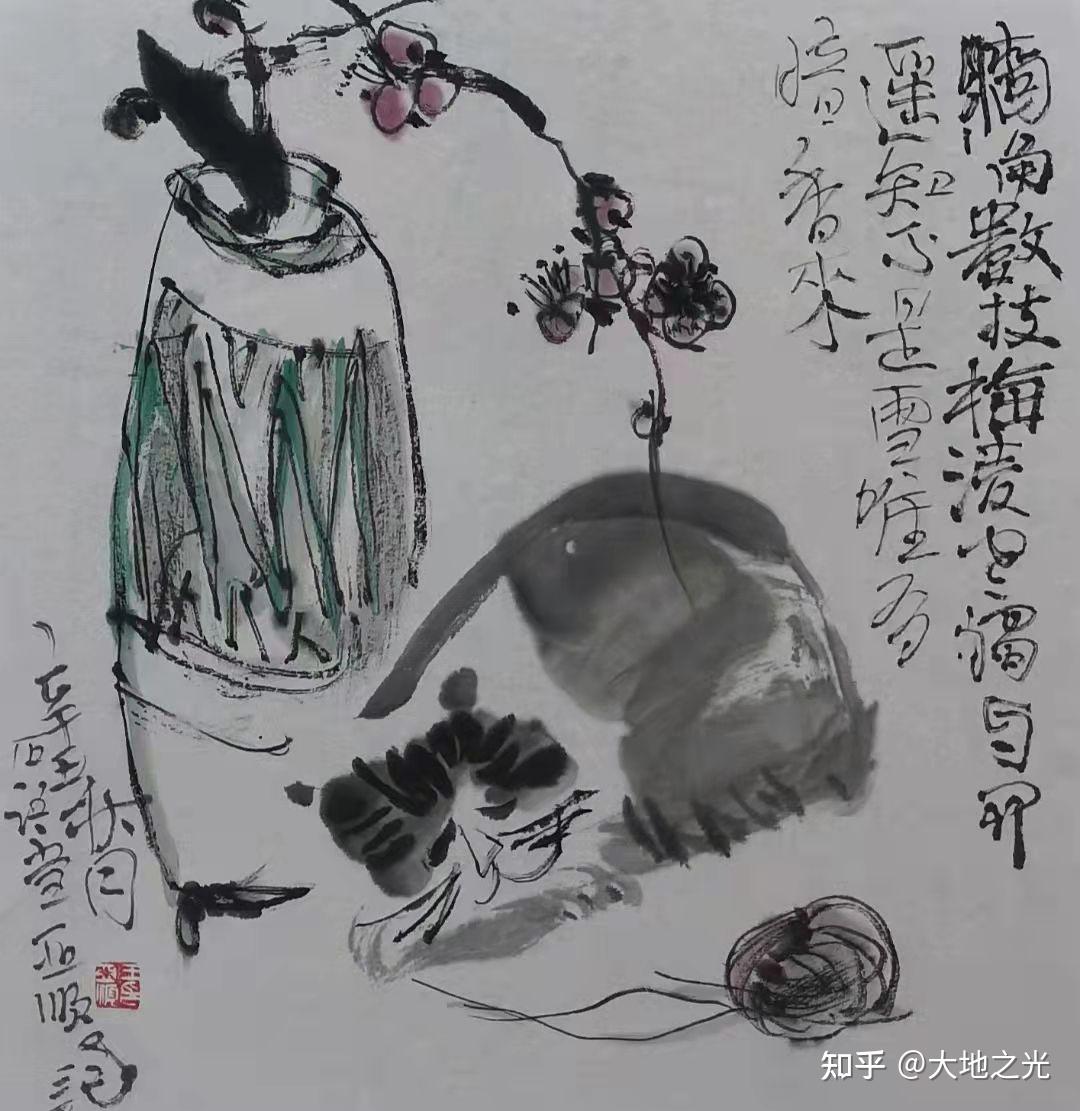 牆角數枝梅淩寒獨自開
遥知不是雪唯有
暗香來
秋月
石语堂亚顺记
知乎 @大地之光